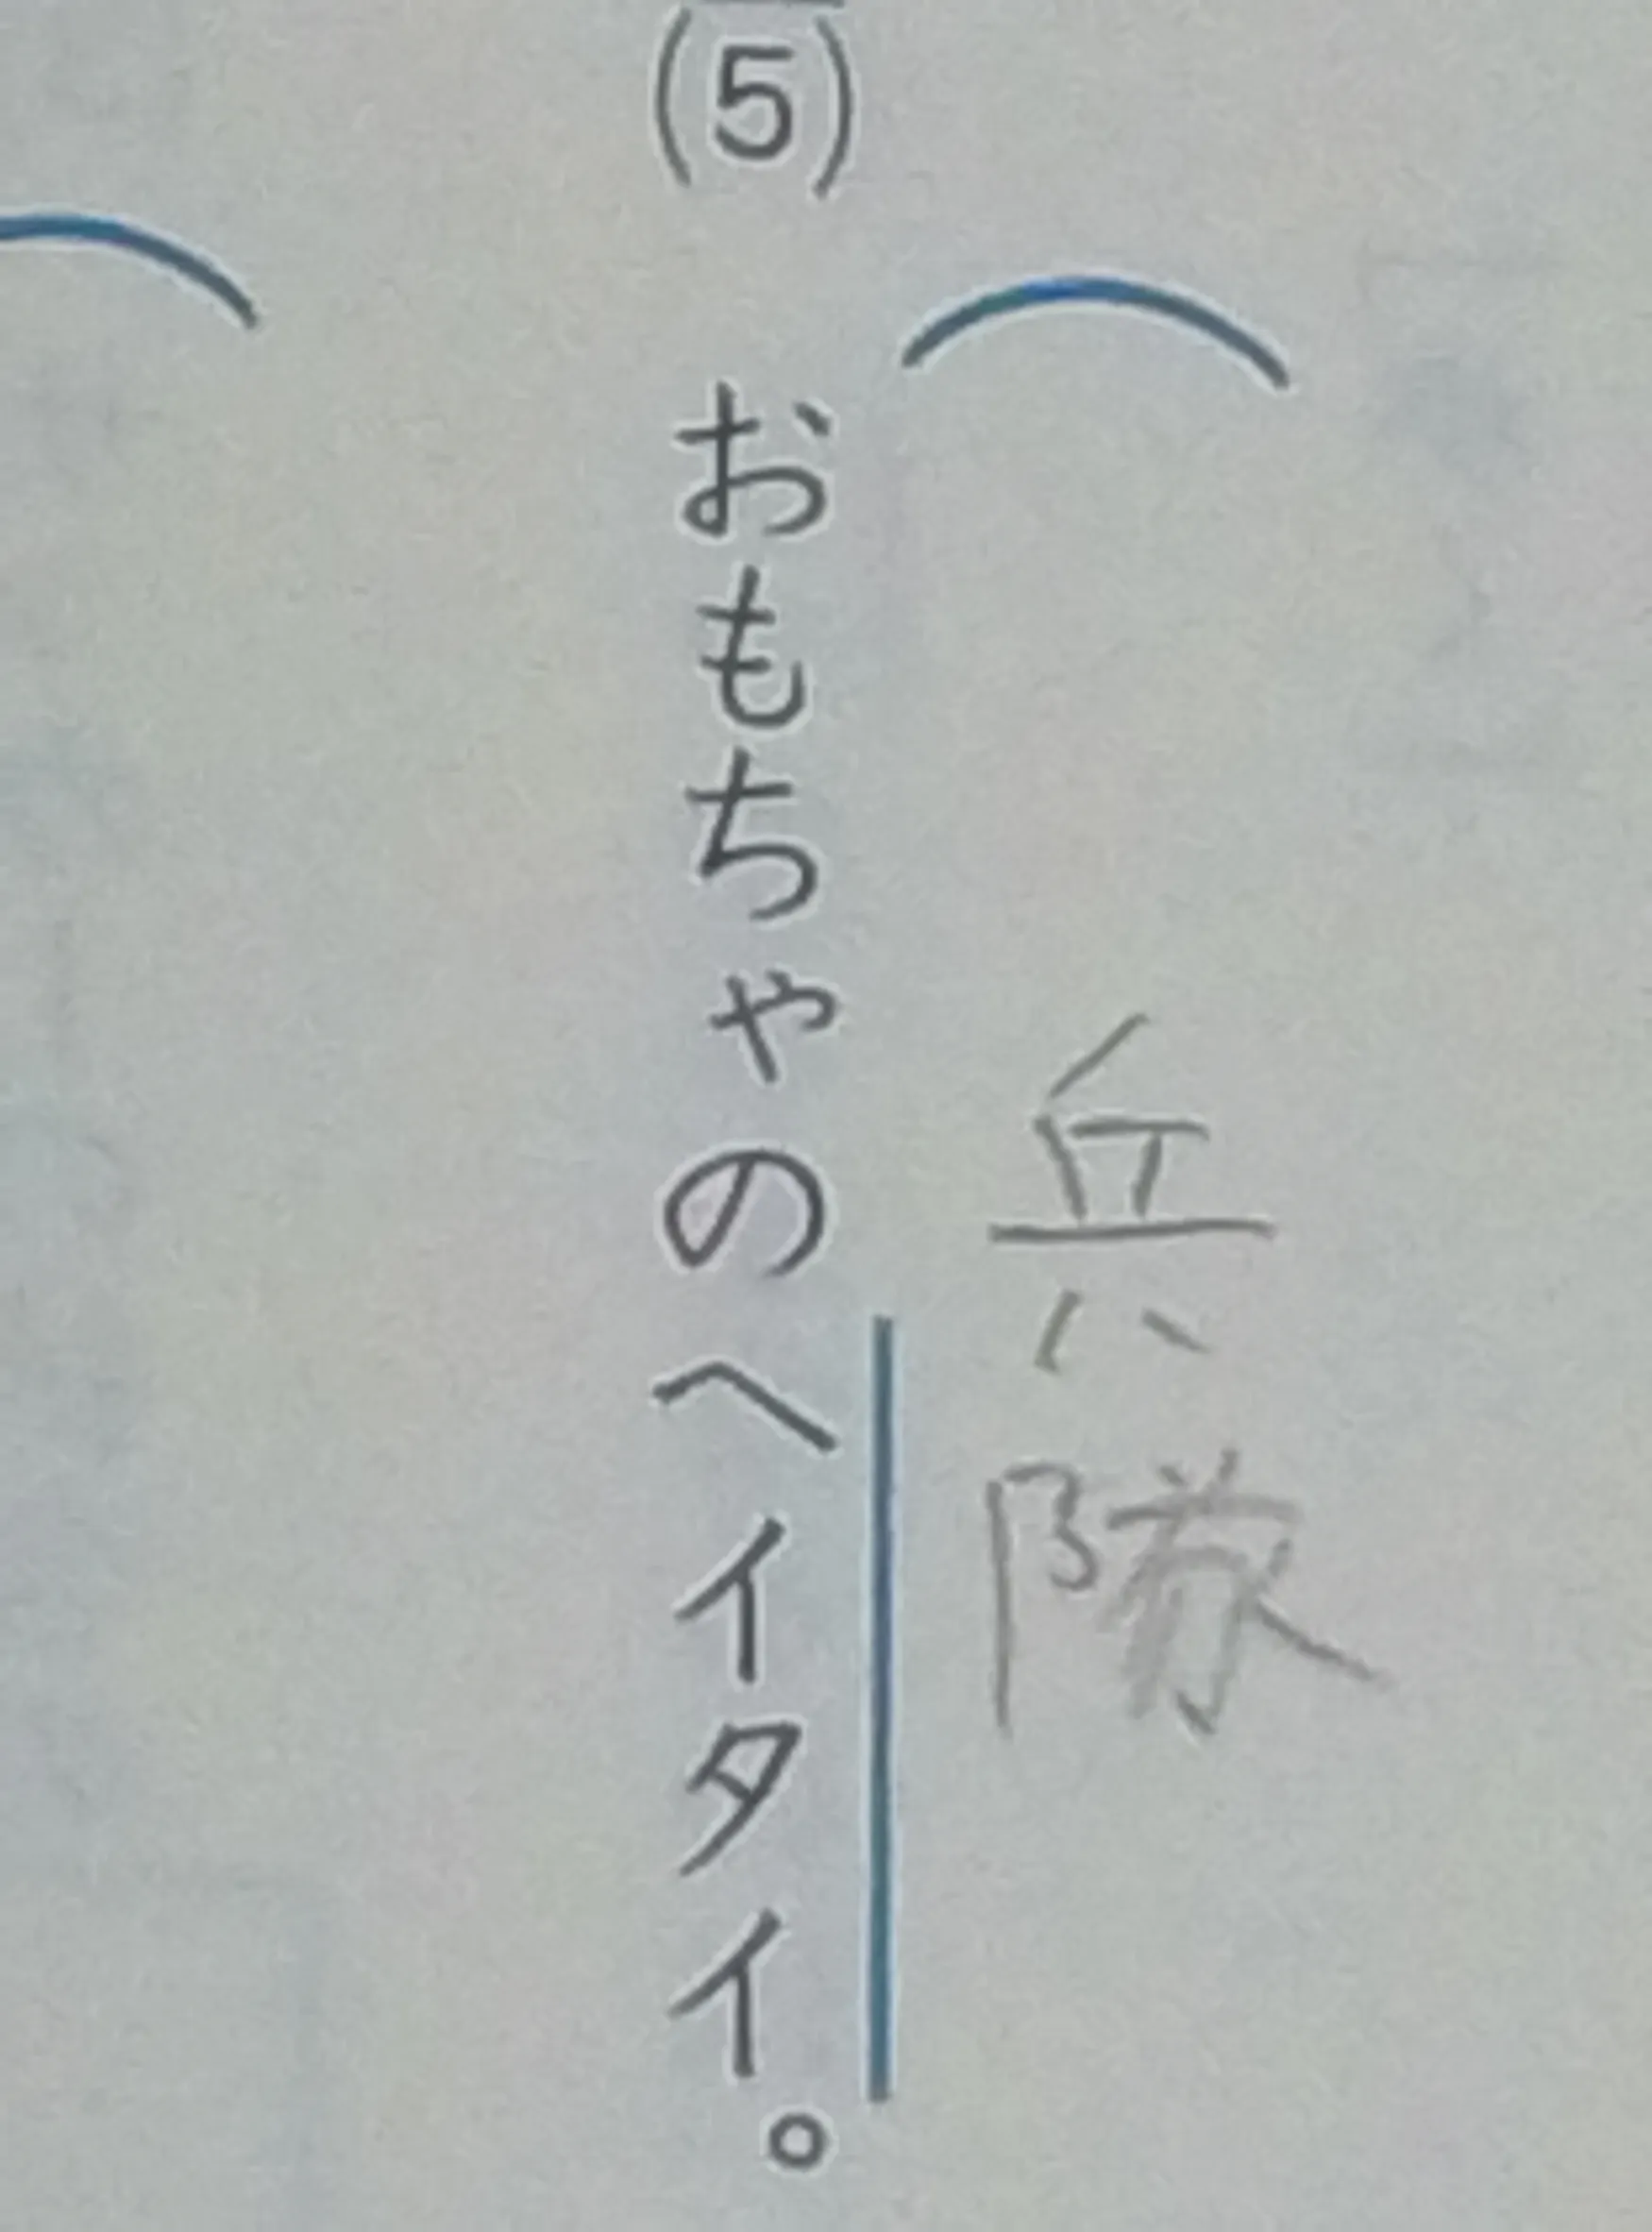 兵隊
(5) おもちゃのヘイタイ。